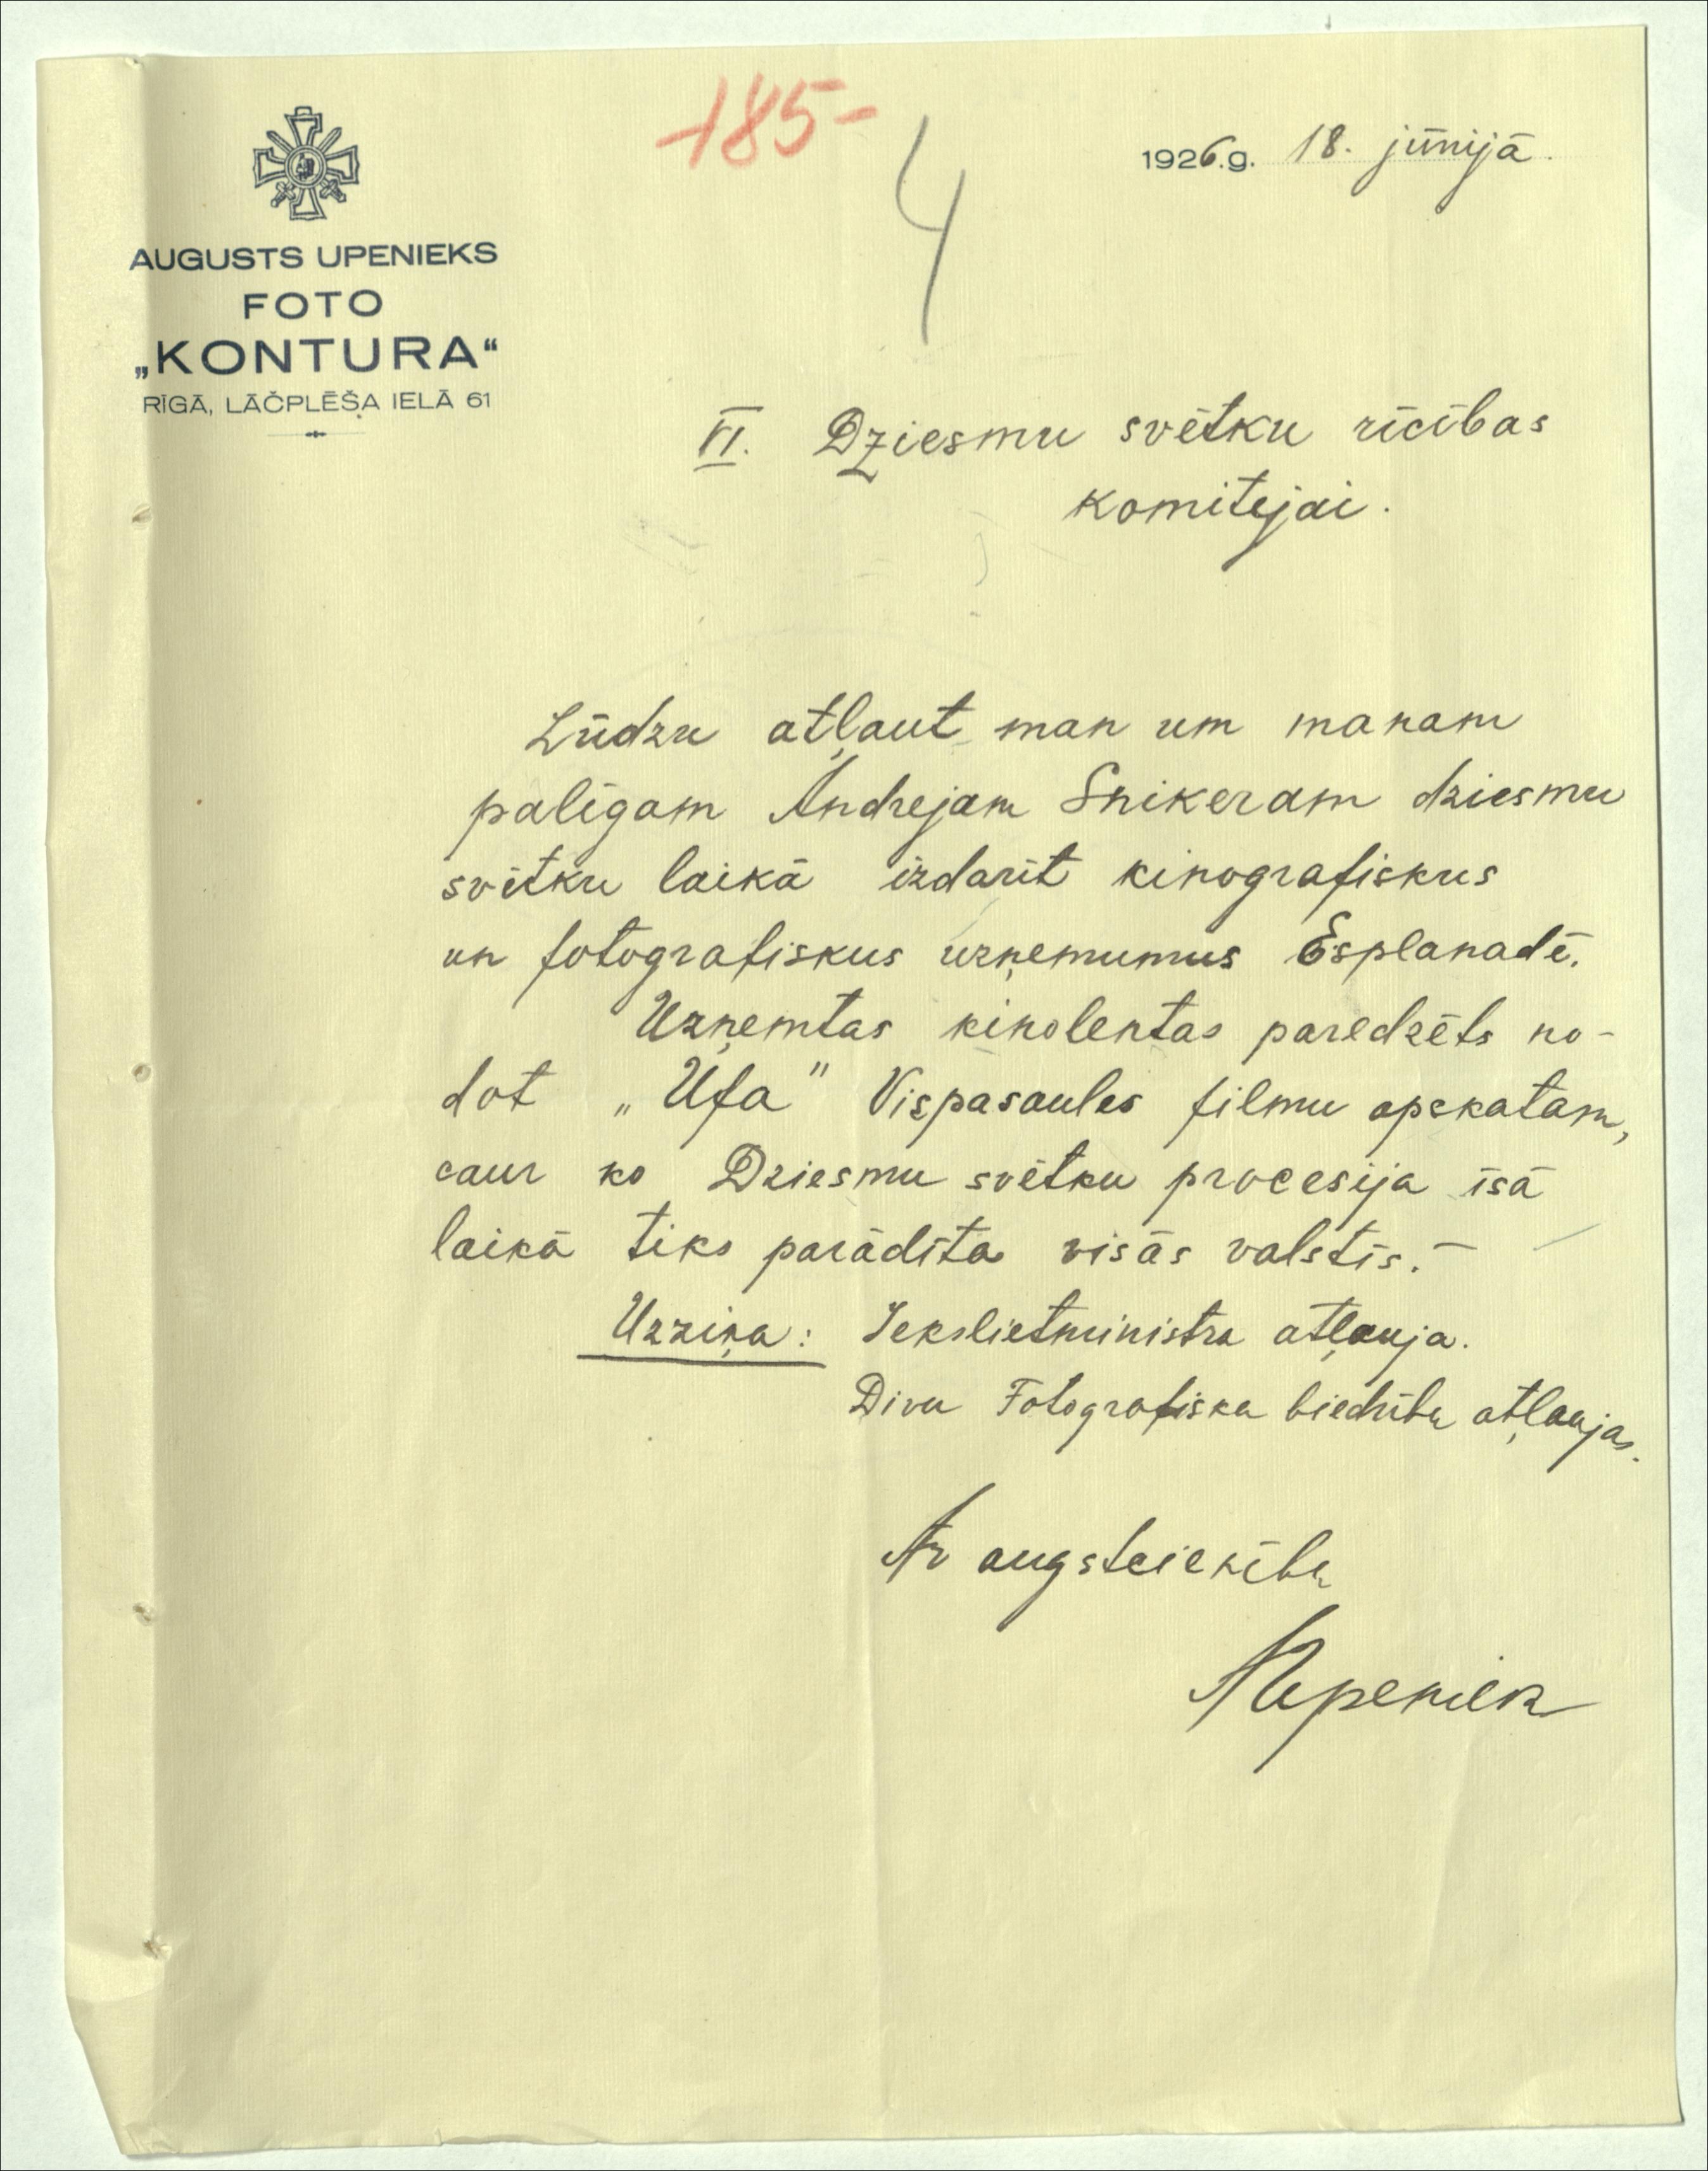 -185-
4
1926.g. 18. jūnijā.
AUGUSTS UPENIEKS
FOTO
„KONTURA“
RĪGĀ, LĀČPLĒŠA IELĀ 61
VI. Dziesmu svētku rīcības
komitejai.
Lūdzu atļaut man um manam
palīgam Andrejam Snikeram dziesmu
svētku laikā izdarīt kinografiskus
un fotografiskus uzņemumus Esplanadē.
Uzņemtas kinolentas paredzēts no-
dot „Ufa" Vispasaules filmu apskatam,
caur ko Dziesmu svētku procesija īsā
laikā tiks parādīta visās valstīs. –
Uzziņa: Iekslietministra atļauja.
Divu Fotografiska biedrību atļaujas.
Ar augstcienību
AUpeniek